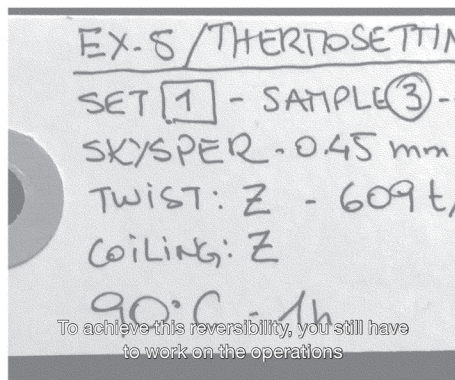 EX-8/THERMOSETTIN
SET 1 - SAMPLE 3 -
SKYSPER - 0.45 mm
TWIST: Z - 609 t/
COILING: Z
90°C - 1h
To achieve this reversibility, you still have
to work on the operations